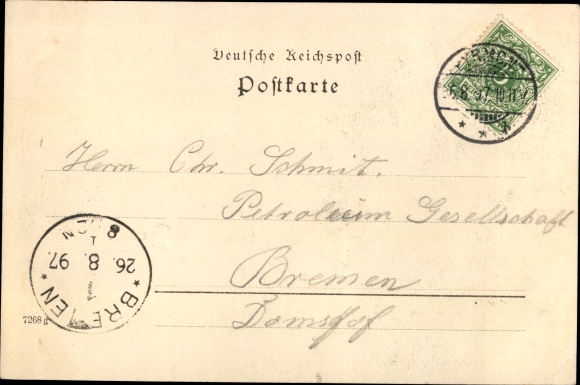 Deutsche Reichspost
Postkarte
8. 97. 10-11 V
Herrn Chr. Schmit.
Petroleum Gesellschaft
Bremen
Domshof
BREMEN
26. 8. 97.
8-9 N
1
7268 g